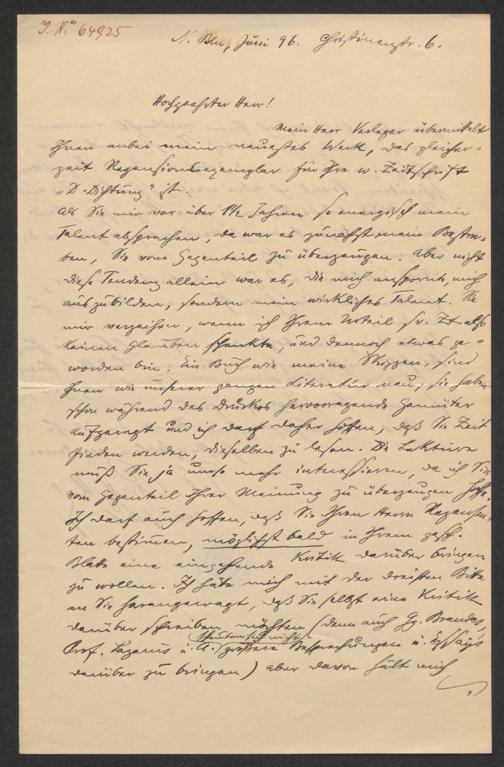 J. N.º 64925
N. Bln, Juni 96. Christinenstr. 6.
Hochgeehrter Herr!
mein Herr Verleger übermittelt
Ihnen anbei mein neuestes Werk, das gleicher-
zeit Rezensionsexemplar für Ihre w. Zeitschrift
"D. Dichtung" ist.
Als Sie mir vor über 1½ Jahren so energisch mein
Talent absprachen, da war es zunächst mein Bestre-
ben, Sie vom Gegenteil zu überzeugen. Aber nicht
diese Tendenz allein war es, die mich anspornte, mich
auszubilden, sondern mein wirkliches Talent. Sie
mir verzeihen, wenn ich Ihrem Urteil sr. Zt. also
keinen Glauben schenkte, und dennoch etwas ge-
worden bin. Ein Buch wie meine Skizzen, sind
Ihnen wie unserer ganzen Literatur neu, sie haben
schon während des Druckes hervorragende Gemüter
aufgeregt und ich darf daher hoffen, daß Sie Zeit
finden werden, dieselben zu lesen. Die Lektüre
muß Sie ja umso mehr interessieren, da ich Sie
vom Gegenteil Ihrer Meinung zu überzeugen hoffe.
Ich darf auch hoffen, daß Sie Ihren Herrn Rezensen-
ten bestimmen, möglichst bald in Ihrem gesch.
Blatt eine eingehende Kritik darüber bringen
zu wollen. Ich hätte mich mit der dreisten Bitte
an Sie herangewagt, daß Sie selbst eine Kritik
darüber schreiben möchten (denn auch Gg. Brandes,
scheuten sich nicht
Prof. Lazarus u. A. größere Besprechungen u. Essays
darüber zu bringen) aber davon hält mich